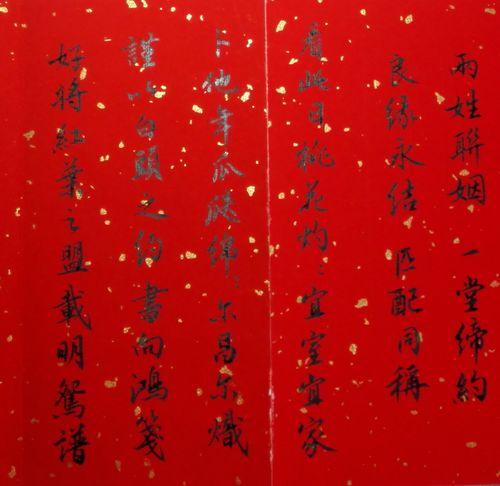 兩姓聯姻 一堂締約
良緣永结 匹配同稱
看此日桃花灼〻宜室宜家
卜他年瓜瓞綿〻尔昌尔熾
謹以白頭之约書向鴻箋
好將紅葉之盟載明鴛譜